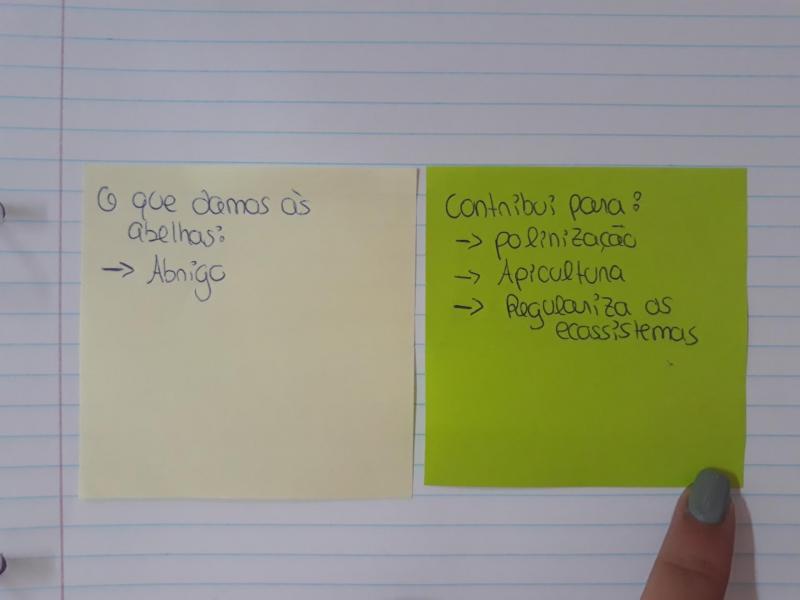 O que damos às
abelhas:
→ Abrigo
Contribui para:
→ polinização
→ Apicultura
→ Regulariza os
ecassistemas